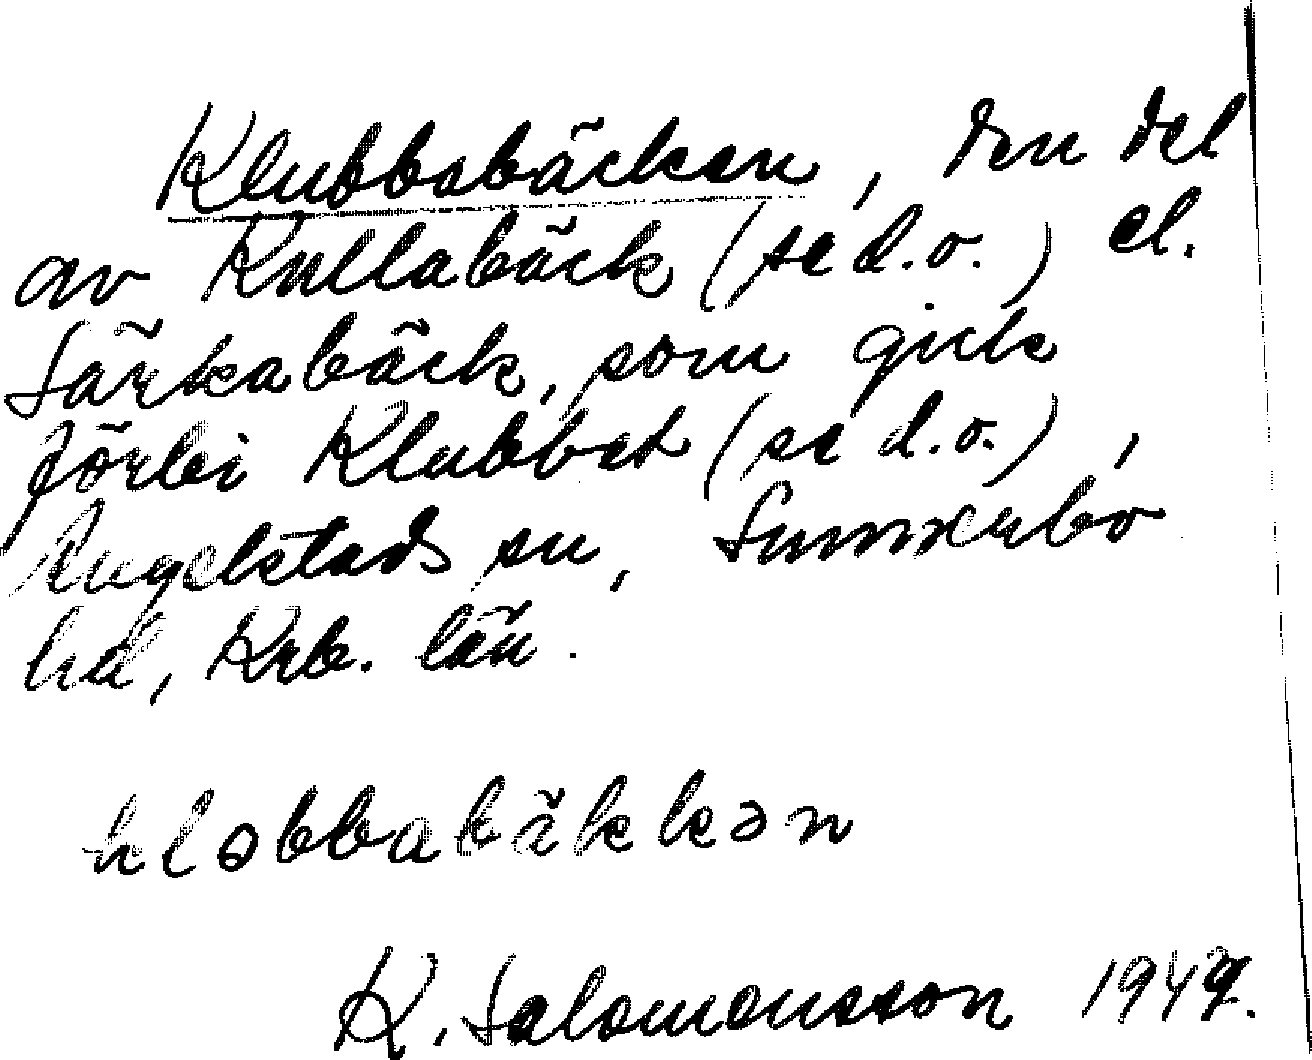 Klubbabäcken, den del
av Kullabäck (se d.o.) el.
Särkabäck, som gick
förbi Klubbet (se d.o.),
Angelstads sn, Sunnerbo
hd, Krb. län.
kləbbabäkkən
K. Salomonsson 1949.